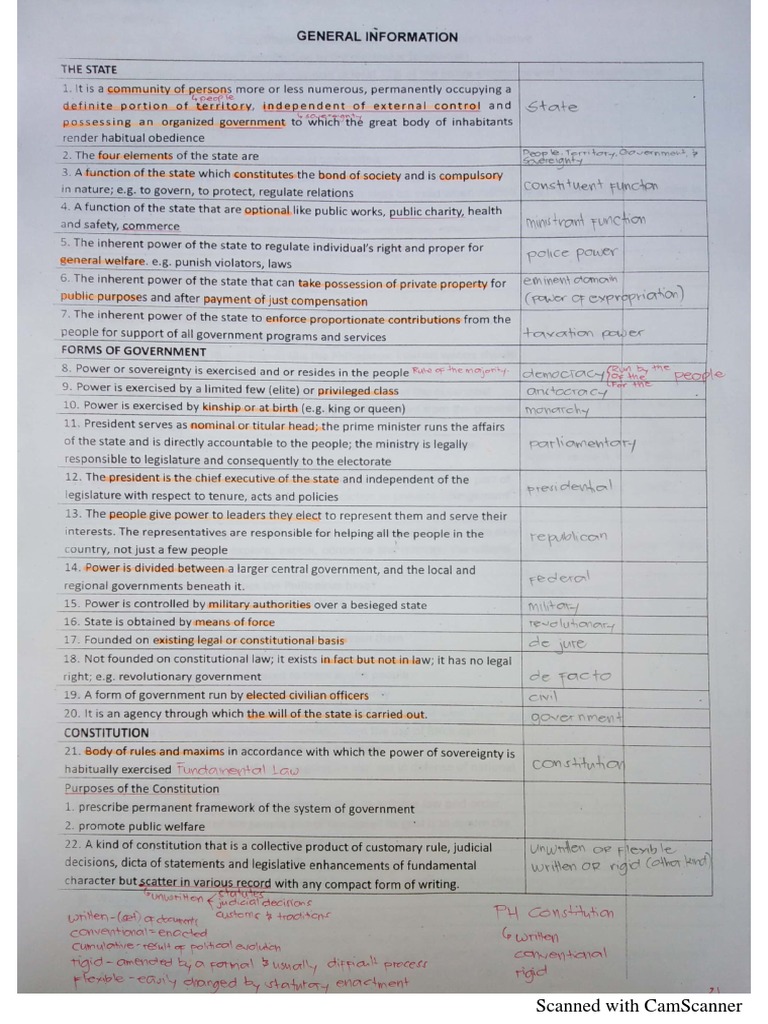 GENERAL INFORMATION
THE STATE
1. It is a community of persons more or less numerous, permanently occupying a
↳people
definite portion of territory, independent of external control and
↳sovereignty
possessing an organized government to which the great body of inhabitants
render habitual obedience
State
2. The four elements of the state are
People, Territory, Government, &
Sovereignty
3. A function of the state which constitutes the bond of society and is compulsory
in nature; e.g. to govern, to protect, regulate relations
constituent function
4. A function of the state that are optional like public works, public charity, health
and safety, commerce
ministrant function
5. The inherent power of the state to regulate individual's right and proper for
general welfare. e.g. punish violators, laws
police power
6. The inherent power of the state that can take possession of private property for
public purposes and after payment of just compensation
eminent domain
(power of expropriation)
7. The inherent power of the state to enforce proportionate contributions from the
people for support of all government programs and services
taxation power
FORMS OF GOVERNMENT
8. Power or sovereignty is exercised and or resides in the people Rule of the majority
democracy
Run by the
Of the people
For the
9. Power is exercised by a limited few (elite) or privileged class
aristocracy
10. Power is exercised by kinship or at birth (e.g. king or queen)
monarchy
11. President serves as nominal or titular head; the prime minister runs the affairs
of the state and is directly accountable to the people; the ministry is legally
responsible to legislature and consequently to the electorate
parliamentary
12. The president is the chief executive of the state and independent of the
legislature with respect to tenure, acts and policies
presidental
13. The people give power to leaders they elect to represent them and serve their
interests. The representatives are responsible for helping all the people in the
country, not just a few people
republican
14. Power is divided between a larger central government, and the local and
regional governments beneath it.
federal
15. Power is controlled by military authorities over a besieged state
military
16. State is obtained by means of force
revolutionary
17. Founded on existing legal or constitutional basis
de jure
18. Not founded on constitutional law; it exists in fact but not in law; it has no legal
right; e.g. revolutionary government
de facto
19. A form of government run by elected civilian officers
civil
20. It is an agency through which the will of the state is carried out.
government
CONSTITUTION
21. Body of rules and maxims in accordance with which the power of sovereignty is
habitually exercised Fundamental Law
constitution
Purposes of the Constitution
1. prescribe permanent framework of the system of government
2. promote public welfare
22. A kind of constitution that is a collective product of customary rule, judicial
decisions, dicta of statements and legislative enhancements of fundamental
character but scatter in various record with any compact form of writing.
unwritten OR flexible
written OR rigid (other kind)
↳unwritten
statutes
judicial decisions
customs & traditions
written - (set) of documents
conventional = enacted
cumulative - result of political evolution
rigid - amended by a formal & usually difficult process
flexible - easily changed by statutory enactment
PH Constitution
↳ written
conventional
rigid
Scanned with CamScanner